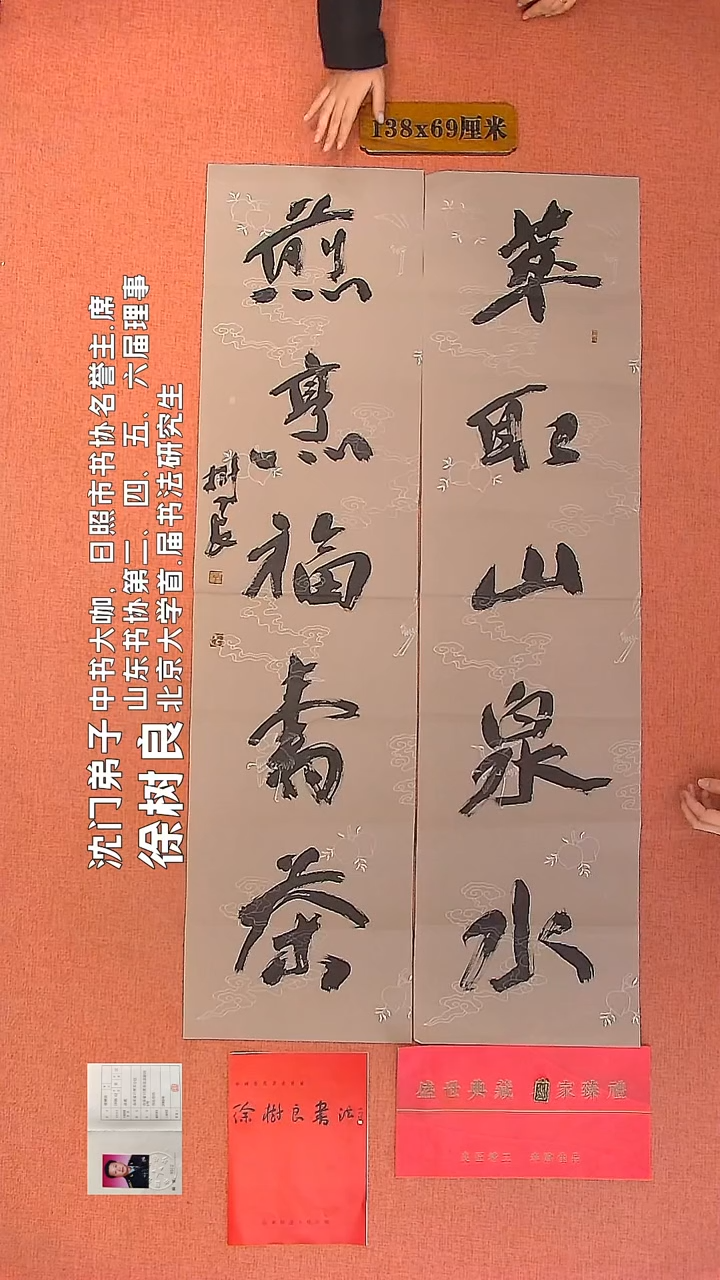 138x69厘米
萃取山泉水
煎烹福寿茶
树良
沈门弟子
徐树良
中书大咖，日照市书协名誉主.席
山东书协第三、四、五、六届理事
北京大学首.届书法研究生
徐树良书法
盛世典藏 国家臻礼